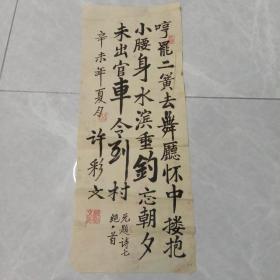 哼罷二簧去舞廳怀中搂抱
小腰身水滨垂釣忘朝夕
未出官車令列村
无题诗七
绝一首
辛未年夏月
许彩文